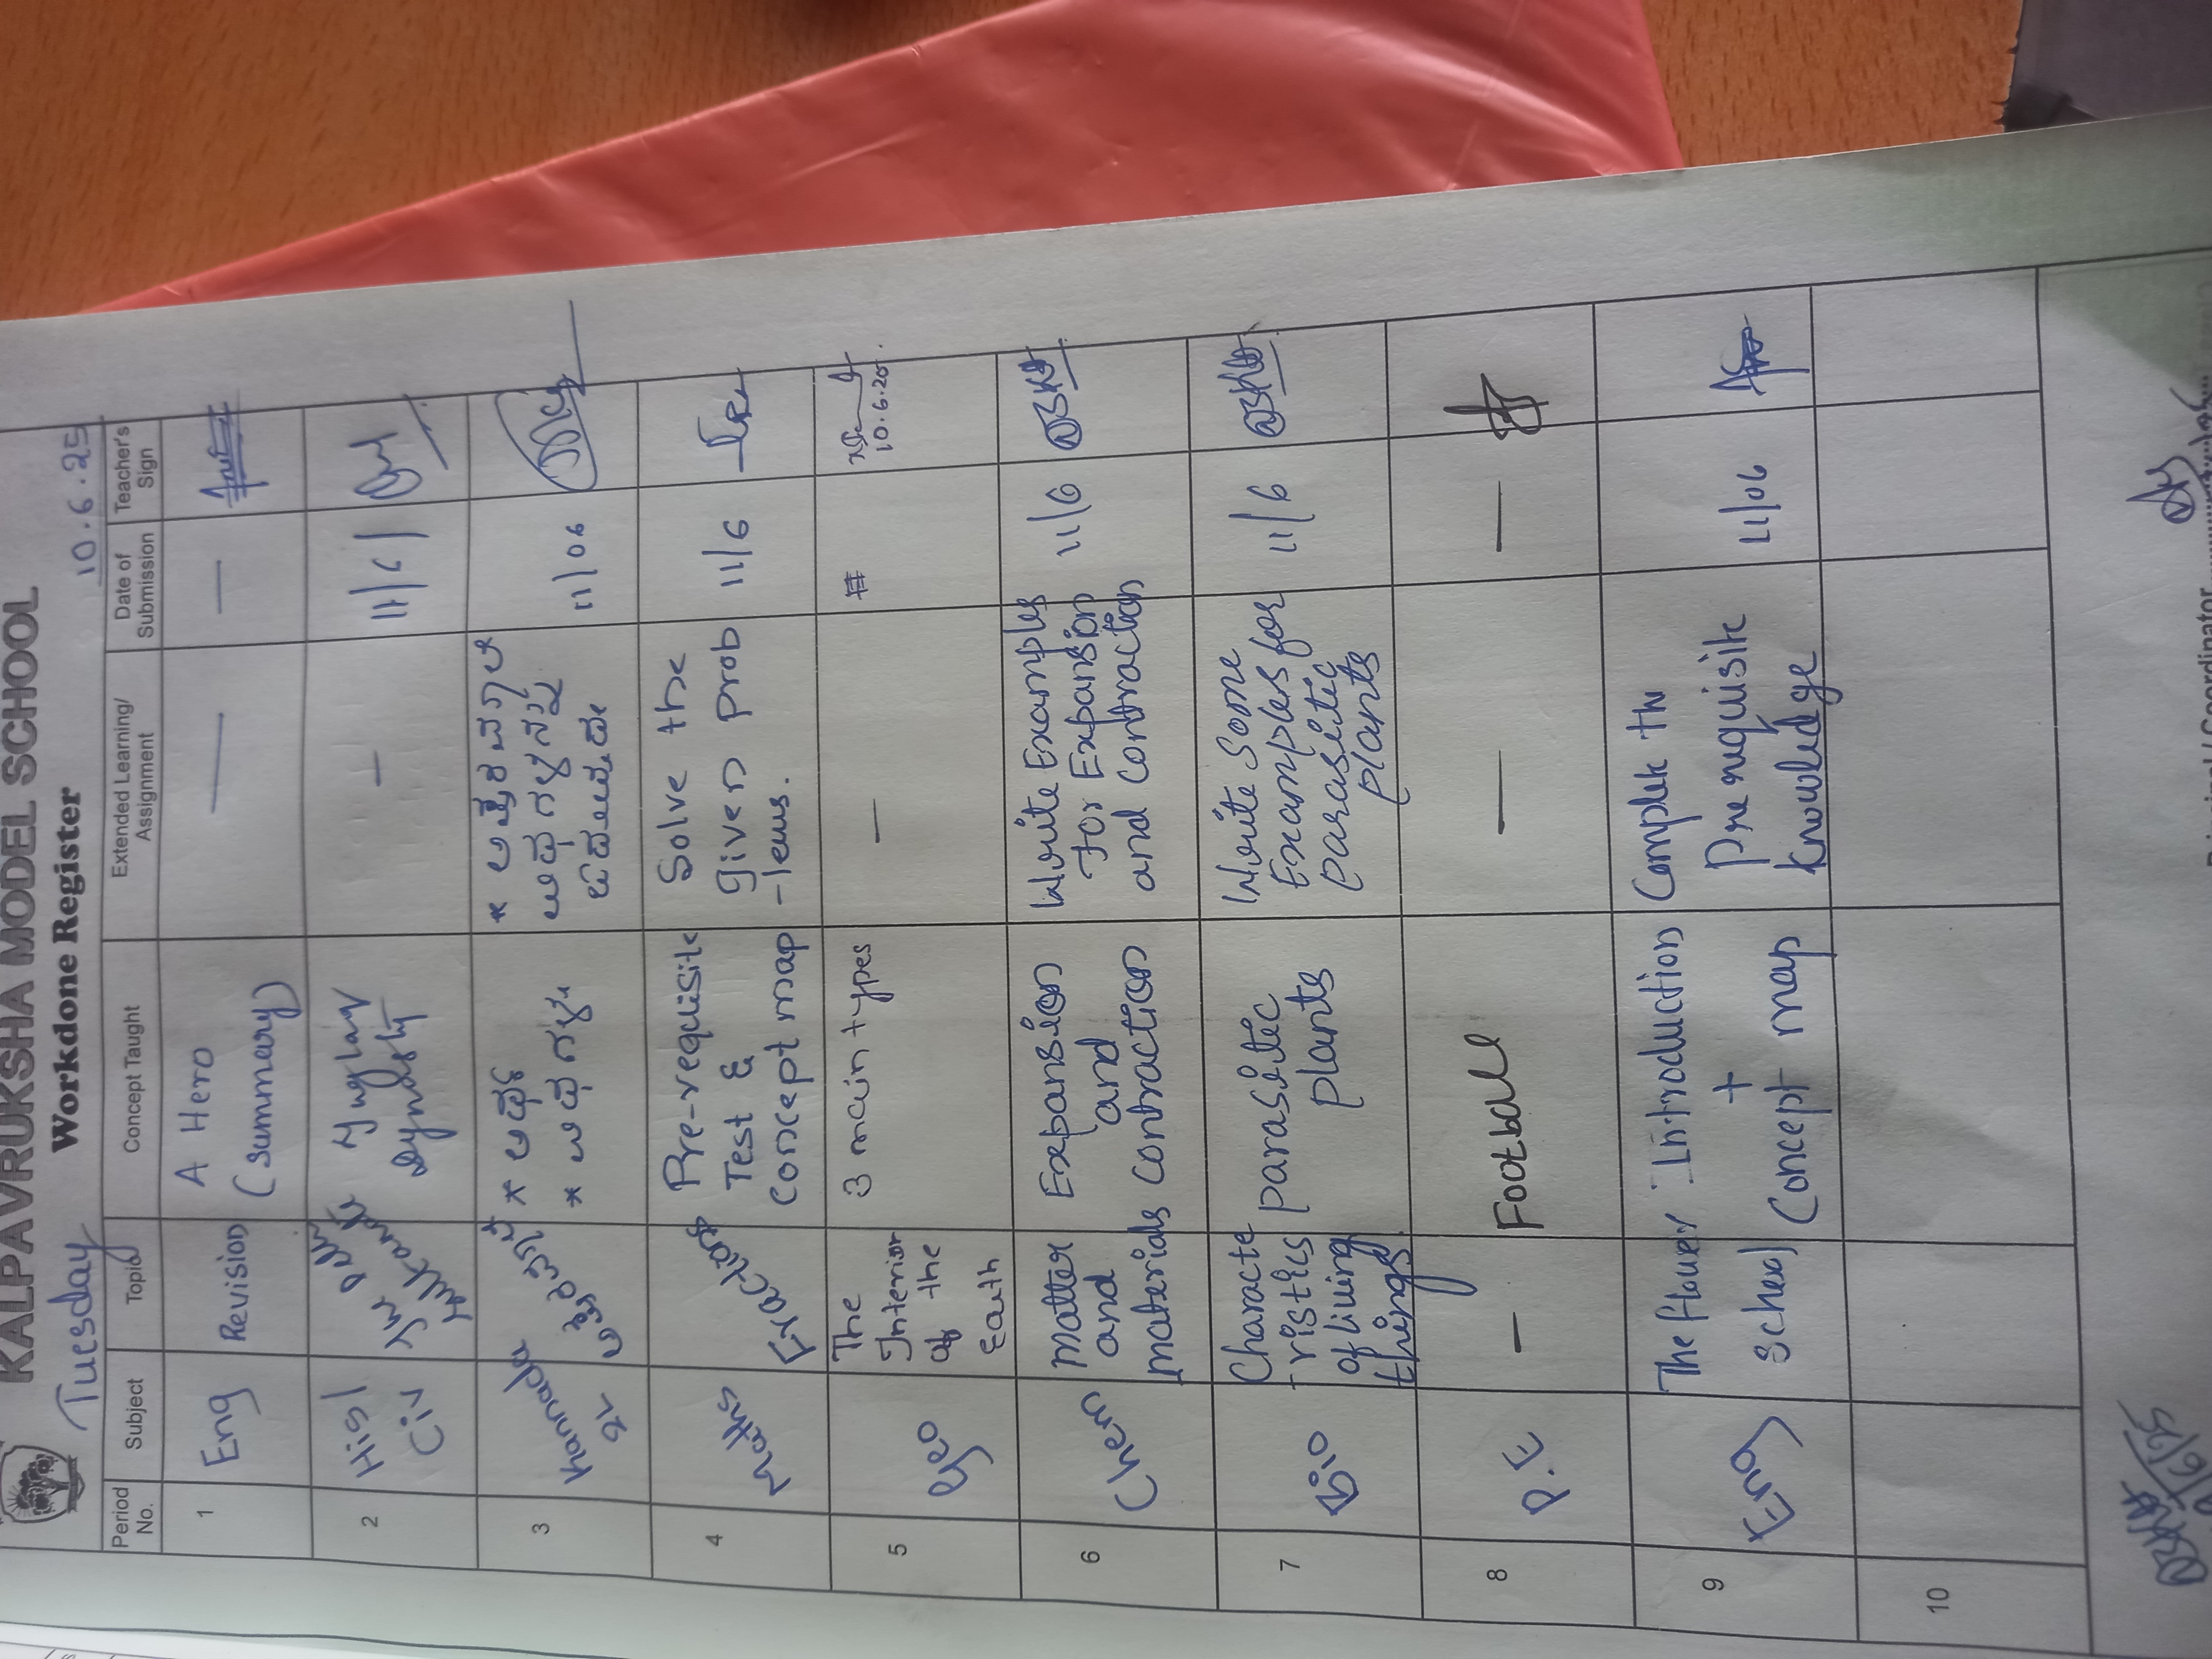 KALPAVRUKSHA MODEL SCHOOL
Workdone Register
Tuesday
10.6.25
Period No.
Subject
Topic
Concept Taught
Extended Learning/ Assignment
Date of Submission
Teacher's Sign
1
Eng
Revision
A Hero
(summary)
—
—
2
His/
Civ
Dynasty
—
11/6/
3
Kannada
2L
11/06
4
Maths
Fractions
Pre-requisite
Test &
Concept map
Solve the
given prob
-lems.
11/6
5
Geo
The
Interior
of the
Earth
3 main types
—
10.6.25
6
Chem
Matter
and
materials
Expansion
and
contraction
Write Examples
for Expansion
and contraction
11/6
7
Bio
Characte
ristics
of living
things
parasitic
plants
Write Some
Examples for
parasitic
plants
11/6
8
P.E
—
Football
—
—
9
Eng
The flower
School
Introduction
+
Concept map
Complete the
Prerequisite
knowledge
11/06
10